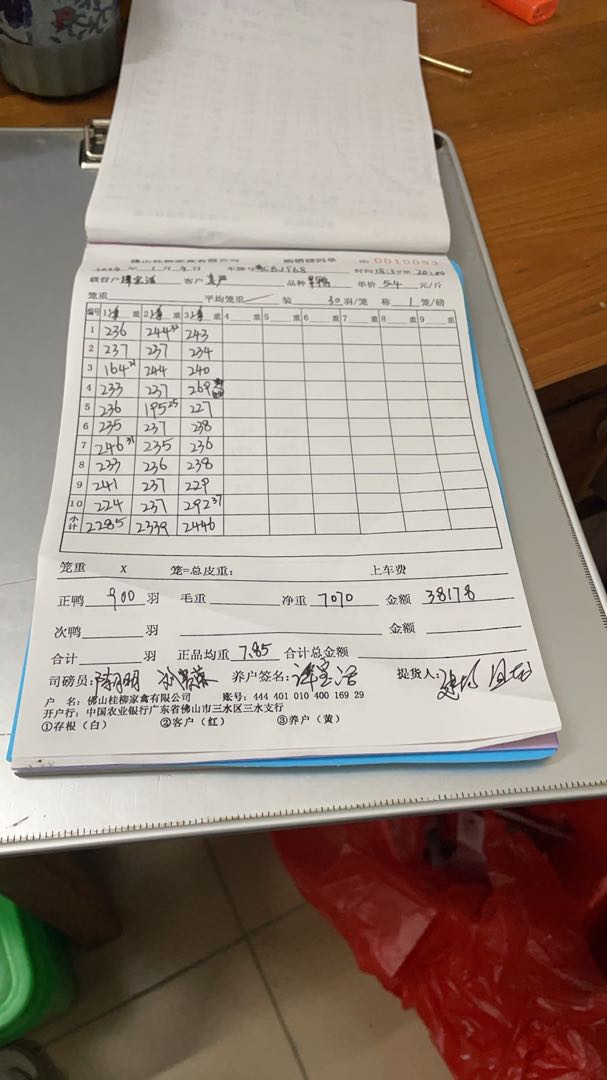 佛山桂柳家禽有限公司 购销磅码单 No 0010093
2024 年 1 月 4 日 车牌号 CBJ568 时间
联营户 客户 品种 单价 5.4 元/斤
笼重 平均笼重 装 30 羽/笼 称 1 笼/磅
编号 1 净 重 2 净 重 3 净 重 4 重 5 重 6 重 7 重 8 重 9 重
1 236 244 32 243
2 237 237 234
3 164 21 244 240
4 233 237 269
5 236 195 25 227
6 235 237 238
7 246 31 235 236
8 233 236 238
9 241 237 229
10 224 237 292 37
小计 2285 2339 2446
笼重 x 笼=总皮重: 上车费
正鸭 900 羽 毛重 净重 7070 金额 38178
次鸭 羽 金额
合计 羽 正品均重 7.85 合计总金额
司磅员: 养户签名: 提货人:
户 名: 佛山桂柳家禽有限公司 账号: 444 401 010 400 169 29
开户行: 中国农业银行广东省佛山市三水区三水支行
①存根（白） ②客户（红） ③养户（黄）